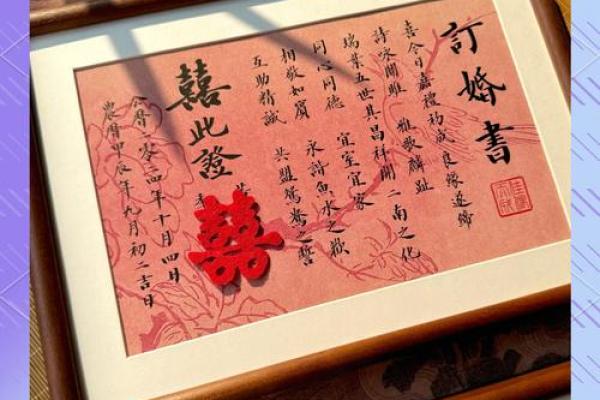 訂婚書
喜今日嘉禮初成 良緣遂締
詩咏關雎 雅歌麟趾
瑞葉五世其昌祥開二南之化
同心同德 宜室宜家
相敬如賓 永諧魚水之歡
互助精誠 共盟鴛鴦之誓
囍此證
囍
公曆二零二四年十月四日
農曆甲辰年九月初二吉日